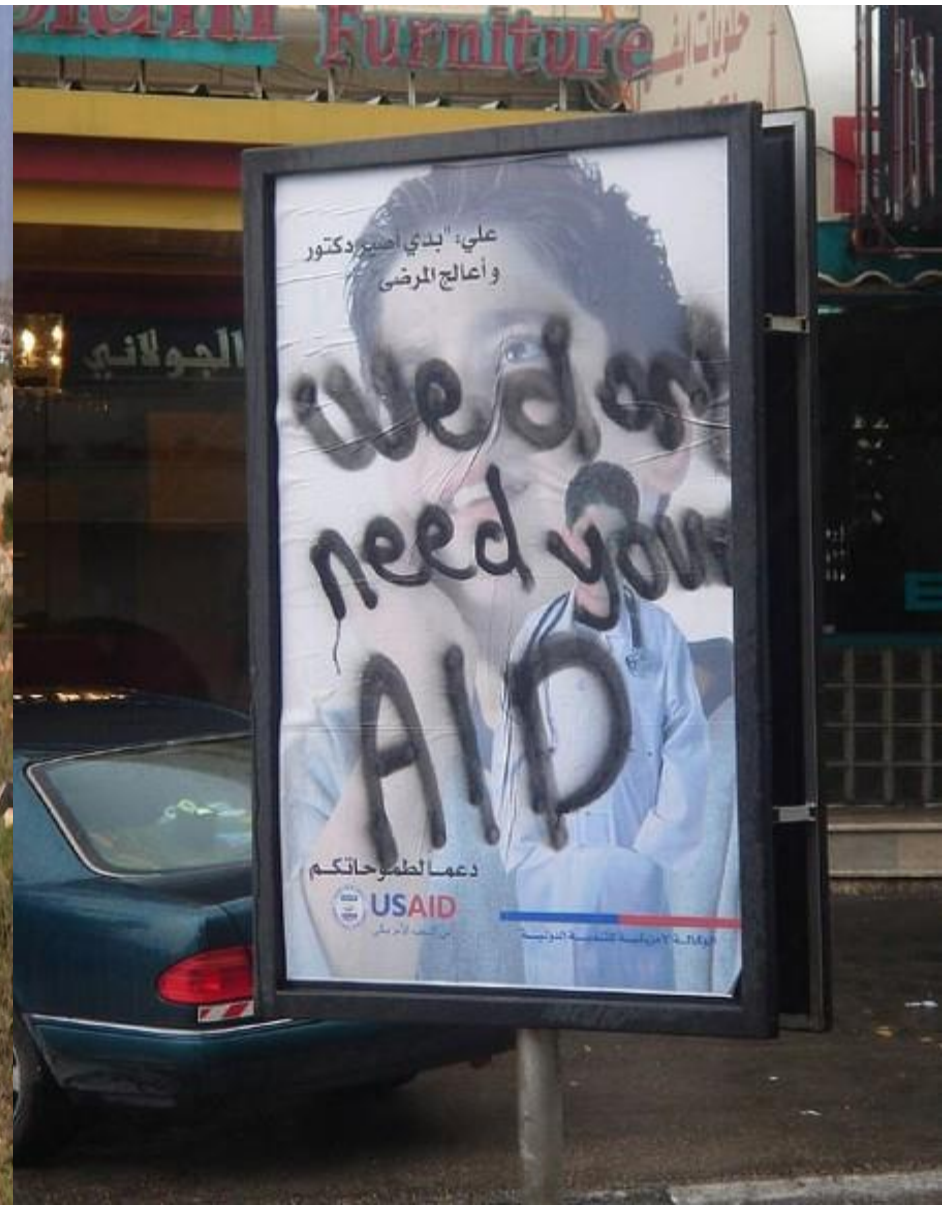 Furniture
حلويات
الجولاني
علي: "بدي أصير دكتور
و أعالج المرضى
We d
need your
AID
دعما لطموحاتكم
USAID
من الشعب الأمريكي
الوكالة الأمريكية للتنمية الدولية